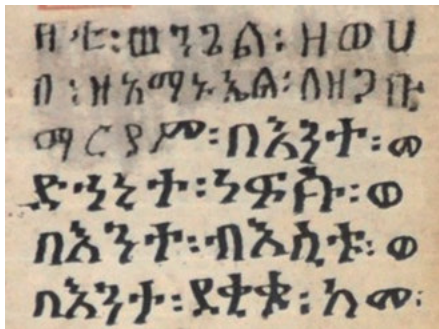 ዛቲ፡ወንጌል፡ዘወሀ
በ፡ዘአማኑኤል፡
ማርያም፡በእንተ፡መ
ድኀኒተ፡ነፍሱ፡ወ
በእንተ፡ብእሲቱ፡ወ
በእንተ፡ደቂቁ፡ከመ፡